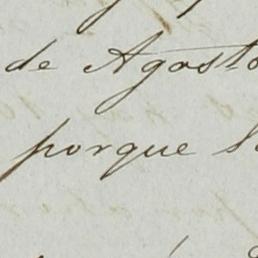 de Agosto
porque